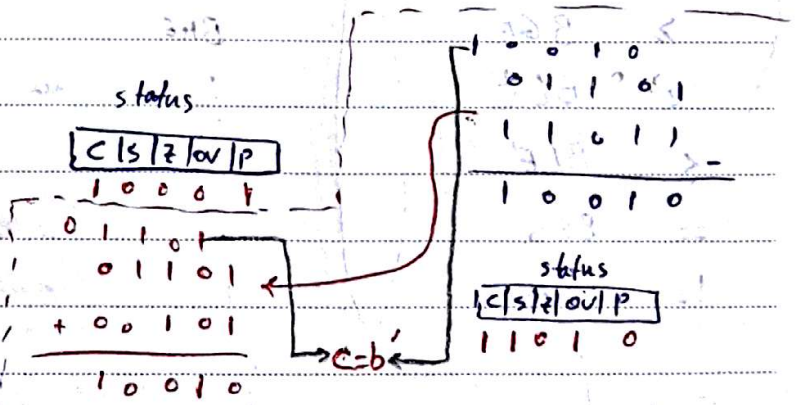 status
C | S | Z | OV | P
1 0 0 0 1
0 1 1 0 1
0 1 1 0 1
+ 0 0 1 0 1
1 0 0 1 0
C=b'
1 0 0 1 0
0 1 1 0 1
1 1 0 1 1
-
1 0 0 1 0
status
C | S | Z | OV | P
1 1 0 1 0